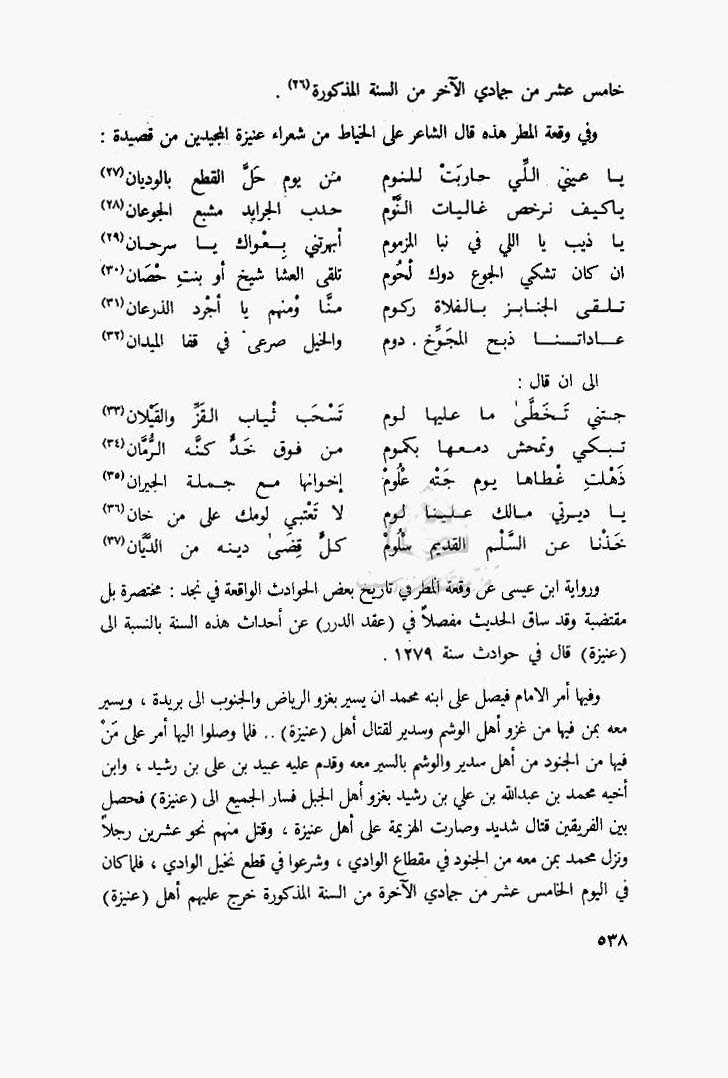 خامس عشر من جمادي الآخر من السنة المذكورة(٢٦) .
وفي وقعة المطر هذه قال الشاعر على الخياط من شعراء عنيزة المجيدين من قصيدة :
يـا عـينيْ اللِّـي حـاربَتْ للـنوم من يوم حَلَّ القطع بالوديان(٢٧)
ياكـيـف نـرخص غـاليـات النَّوْم حـدب الجرايد مشبع الجوعان(٢٨)
يـا ذيب يا اللي في نبا المزموم أبهرتني بِـعْـواك يـا سرحـان(٢٩)
ان كان تشكي الجوع دوك لْحُوم تلقى العشا شيخ أو بنتِ حْصَان(٣٠)
تـلـقـى الجنـابـز بـالفلاة ركـوم منَّا وْمنهم يا أجْرد الذرعان(٣١)
عـاداتـنـا ذبـح المجَوِّخ . دوم والخيل صرعى في قفا الميدان(٣٢)
الى ان قال :
جـتني تَـخَـطَّىٰ مـا عـليها لـوم تَسْحَب ثْيـاب القَزِّ والقَيْلان(٣٣)
تـبـكـي وتمحش دمـعـها بكمـوم مـن فـوق خَـدٌّ كـنَّـه الـرُّمَّان(٣٤)
ذَهْلتِ غْطـاهـا يـوم جَتْه عْلُومْ إخـوانها مـع جـمـلـة الجيران(٣٥)
يـا ديـرتي مـالك عـلـينا لـوم لا تَعْتبي لومك على من خان(٣٦)
خَـذْنـا عـن السَّلْـم القديم سْلُومْ كـلٌّ قِضَىٰ دينـه من الدَّيَّان(٣٧)
ورواية ابن عيسى عن وقعة المطر في تاريخ بعض الحوادث الواقعة في نجد : مختصرة بل
مقتضبة وقد ساق الحديث مفصلاً في (عقد الدرر) عن أحداث هذه السنة بالنسبة الى
(عنيزة) قال في حوادث سنة ١٢٧٩ .
وفيها أمر الامام فيصل على ابنه محمد ان يسير بغزو الرياض والجنوب الى بريدة ، ويسير
معه بمن فيها من غزو أهل الوشم وسدير لقتال أهل (عنيزة) .. فلما وصلوا اليها أمر على مَنْ
فيها من الجنود من أهل سدير والوشم بالسير معه وقدم عليه عبيد بن على بن رشيد ، وابن
أخيه محمد بن عبدالله بن علي بن رشيد بغزو أهل الجبل فسار الجميع الى (عنيزة) فحصل
بين الفريقين قتال شديد وصارت الهزيمة على أهل عنيزة ، وقتل منهم نحو عشرين رجلاً
ونزل محمد بمن معه من الجنود في مقطاع الوادي ، وشرعوا في قطع نخيل الوادي ، فلما كان
في اليوم الخامس عشر من جمادي الآخرة من السنة المذكورة خرج عليهم أهل (عنيزة)
٥٣٨